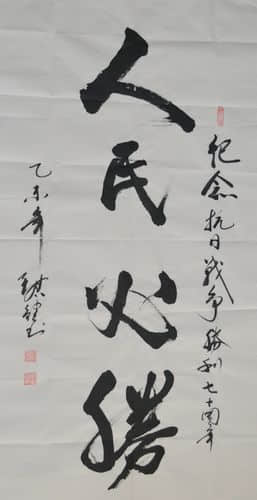 纪念抗日战争胜利七十周年
人民必勝
乙未年